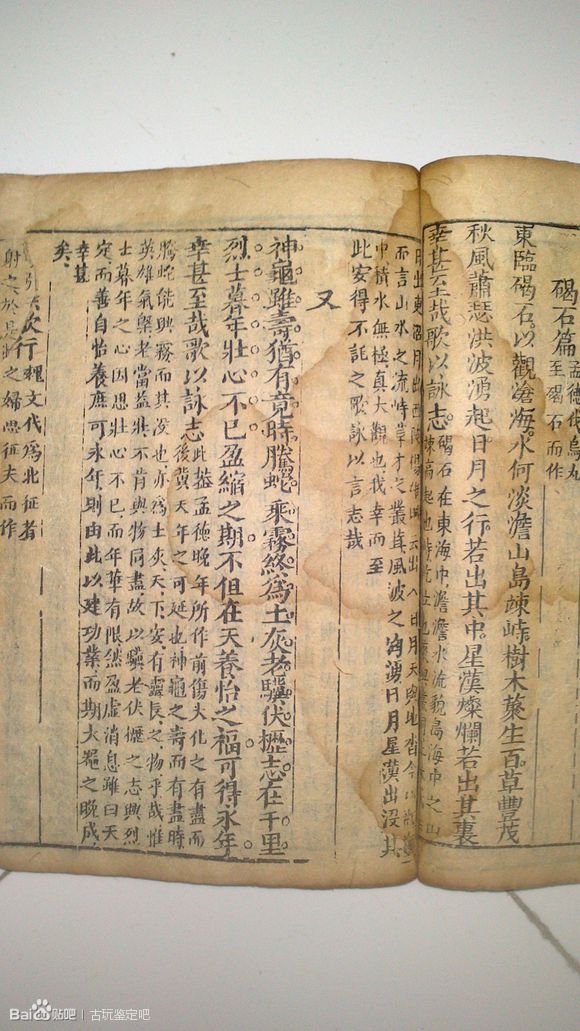 碣石篇 孟德伐烏丸至碣石而作
東臨碣石。以觀滄海。水何淡澹山島竦峙樹木藂生百草豐茂
秋風蕭瑟洪波湧起。日月之行若出其中。星漢燦爛若出其裏
幸甚至哉歌以詠志。碣石在東海中澹澹水流貌島海中之山
而言山水之流峙草木之叢茸風波之洶湧日月星漢出沒其
中積水無極真大觀也我幸而至
此安得不託之歌詠以言志哉
又
神龜雖壽猶有竟時騰蛇乘霧終為土灰老驥伏櫪志在千里
烈士暮年壯心不已盈縮之期不但在天養怡之福可得永年
幸甚至哉歌以詠志 此葢孟德晚年所作前傷大化之有盡而後冀天年之可延也神龜之壽而有盡時
騰蛇能興霧而其沒也亦為土灰天下安有靈長之物乎哉惟
英雄氣槩老當益壯不肯與物同盡故以驥老伏櫪之志興烈
士暮年之心因思壯心不已而年華有限然盈虛消息雖曰天
定而善自怡養庶可永年則由此以建功業而期大器之晚成
幸甚
矣
行 魏文代為北征者
之於思婦念征夫而作
Baidu贴吧 | 古玩鉴定吧